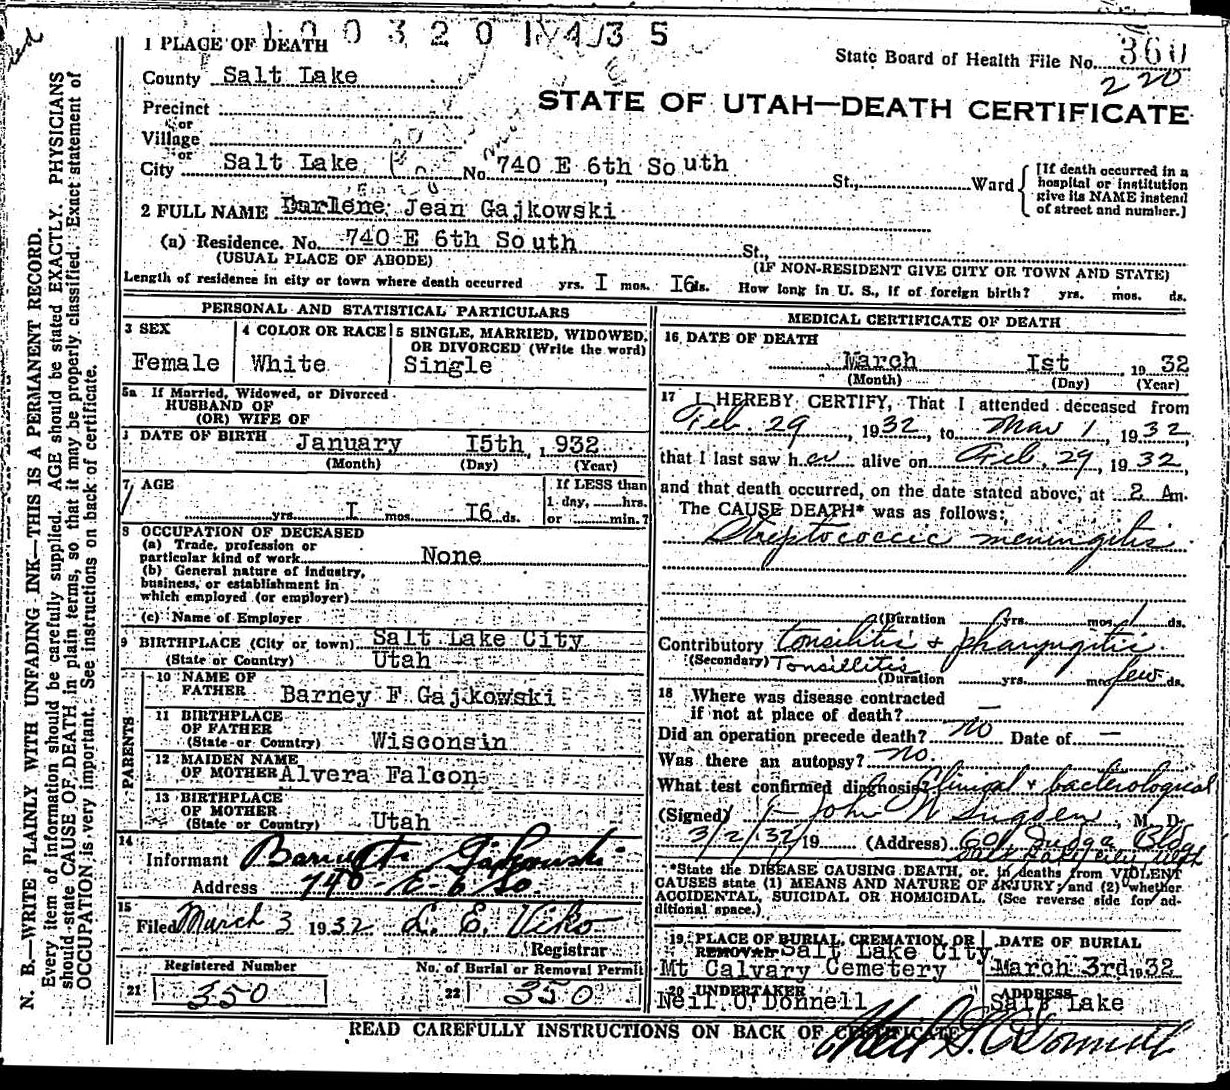 1003201435
State Board of Health File No. 360
220
1 PLACE OF DEATH
County Salt Lake
STATE OF UTAH—DEATH CERTIFICATE
Precinct
or
Village
or
City Salt Lake No. 740 E 6th South St., Ward
[If death occurred in a hospital or institution give its NAME instead of street and number.]
2 FULL NAME Darlene Jean Gajkowski
(a) Residence. No. 740 E 6th South St.,
(USUAL PLACE OF ABODE) (IF NON-RESIDENT GIVE CITY OR TOWN AND STATE)
Length of residence in city or town where death occurred yrs. I mos. I6 ds. How long in U. S., if of foreign birth? yrs. mos. ds.
PERSONAL AND STATISTICAL PARTICULARS
3 SEX Female
4 COLOR OR RACE White
5 SINGLE, MARRIED, WIDOWED, OR DIVORCED (Write the word) Single
5a If Married, Widowed, or Divorced
HUSBAND OF
(OR) WIFE OF
DATE OF BIRTH January I5th, 1932
(Month) (Day) (Year)
7 AGE yrs. I mos. I6 ds.
If LESS than
1 day, hrs.
or min.?
8 OCCUPATION OF DECEASED
(a) Trade, profession or
particular kind of work None
(b) General nature of industry,
business, or establishment in
which employed (or employer)
(c) Name of Employer
9 BIRTHPLACE (City or town) Salt Lake City
(State or Country) Utah
PARENTS
10 NAME OF
FATHER Barney F Gajkowski
11 BIRTHPLACE
OF FATHER
(State or Country) Wisconsin
12 MAIDEN NAME
OF MOTHER Alvera Falcon
13 BIRTHPLACE
OF MOTHER
(State or Country) Utah
14
Informant Gajkowski
Address 740-E-6 So
15
Filed March 3 1932 L. E. Viko
Registrar
Registered Number
21 350
No. of Burial or Removal Permit
22 350
MEDICAL CERTIFICATE OF DEATH
16 DATE OF DEATH
March Ist, 1932
(Month) (Day) (Year)
17 I HEREBY CERTIFY, That I attended deceased from
Feb. 29, 1932, to Mar 1, 1932,
that I last saw her alive on Feb. 29, 1932,
and that death occurred, on the date stated above, at 2 Am.
The CAUSE DEATH* was as follows:
Streptococcic meningitis
(Duration yrs. mos. 1 ds.
Contributory tonsilitis + pharyngitis
(Secondary) Tonsillitis
(Duration yrs. mos. few ds.
18 Where was disease contracted
if not at place of death? —
Did an operation precede death? no Date of —
Was there an autopsy? no
What test confirmed diagnosis? Clinical + bacterological
(Signed) John W Sugden, M. D.
3/2/32 19 (Address) 601 Judge Bldg
Salt Lake City, Utah
*State the DISEASE CAUSING DEATH, or, in deaths from VIOLENT
CAUSES state (1) MEANS AND NATURE OF INJURY; and (2) whether
ACCIDENTAL, SUICIDAL OR HOMICIDAL. (See reverse side for ad-
ditional space.)
19 PLACE OF BURIAL, CREMATION, OR
REMOVAL Salt Lake City
Mt Calvary Cemetery
DATE OF BURIAL
March 3rd 1932
20 UNDERTAKER
Neil O'Donnell
ADDRESS
Salt Lake
Neil O'Donnell
READ CAREFULLY INSTRUCTIONS ON BACK OF CERTIFICATE
N. B.—WRITE PLAINLY WITH UNFADING INK—THIS IS A PERMANENT RECORD.
Every item of information should be carefully supplied. AGE should be stated EXACTLY. PHYSICIANS
should state CAUSE OF DEATH in plain terms, so that it may be properly classified. Exact statement of
OCCUPATION is very important. See instructions on back of certificate.